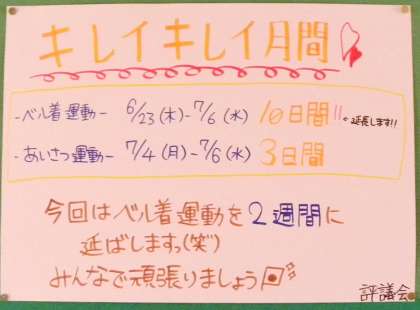 キレイキレイ月間
-ベル着運動- 6/23(木)-7/6(水) 10日間!! 。延長します!!
-あいさつ運動- 7/4(月)-7/6(水) 3日間
今回はベル着運動を2週間に
延ばしますっ(笑)
みんなで頑張りましょう
評議会